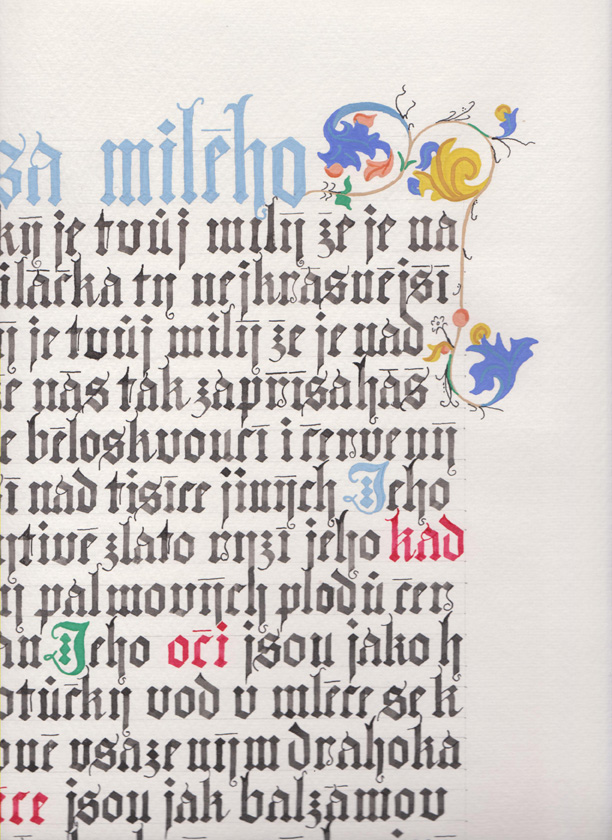 sa milého
ký je tvůj milý že je na
iláčka ty nejkrásnější
ý je tvůj milý že je nad
e nás tak zapřísaháš
e běloskvoucí i červený
í nad tisíce jiných Jeho
ytivé zlato ryzí jeho kad
ý palmových plodů čer
an Jeho oči jsou jako h
otůčky vod v mléce se k
vsazeným drahoka
íce jsou jak balzámov